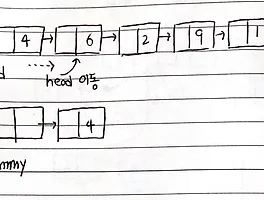 4 → 6 → 2 → 9 → 1
head 이동
→ 4
mmy